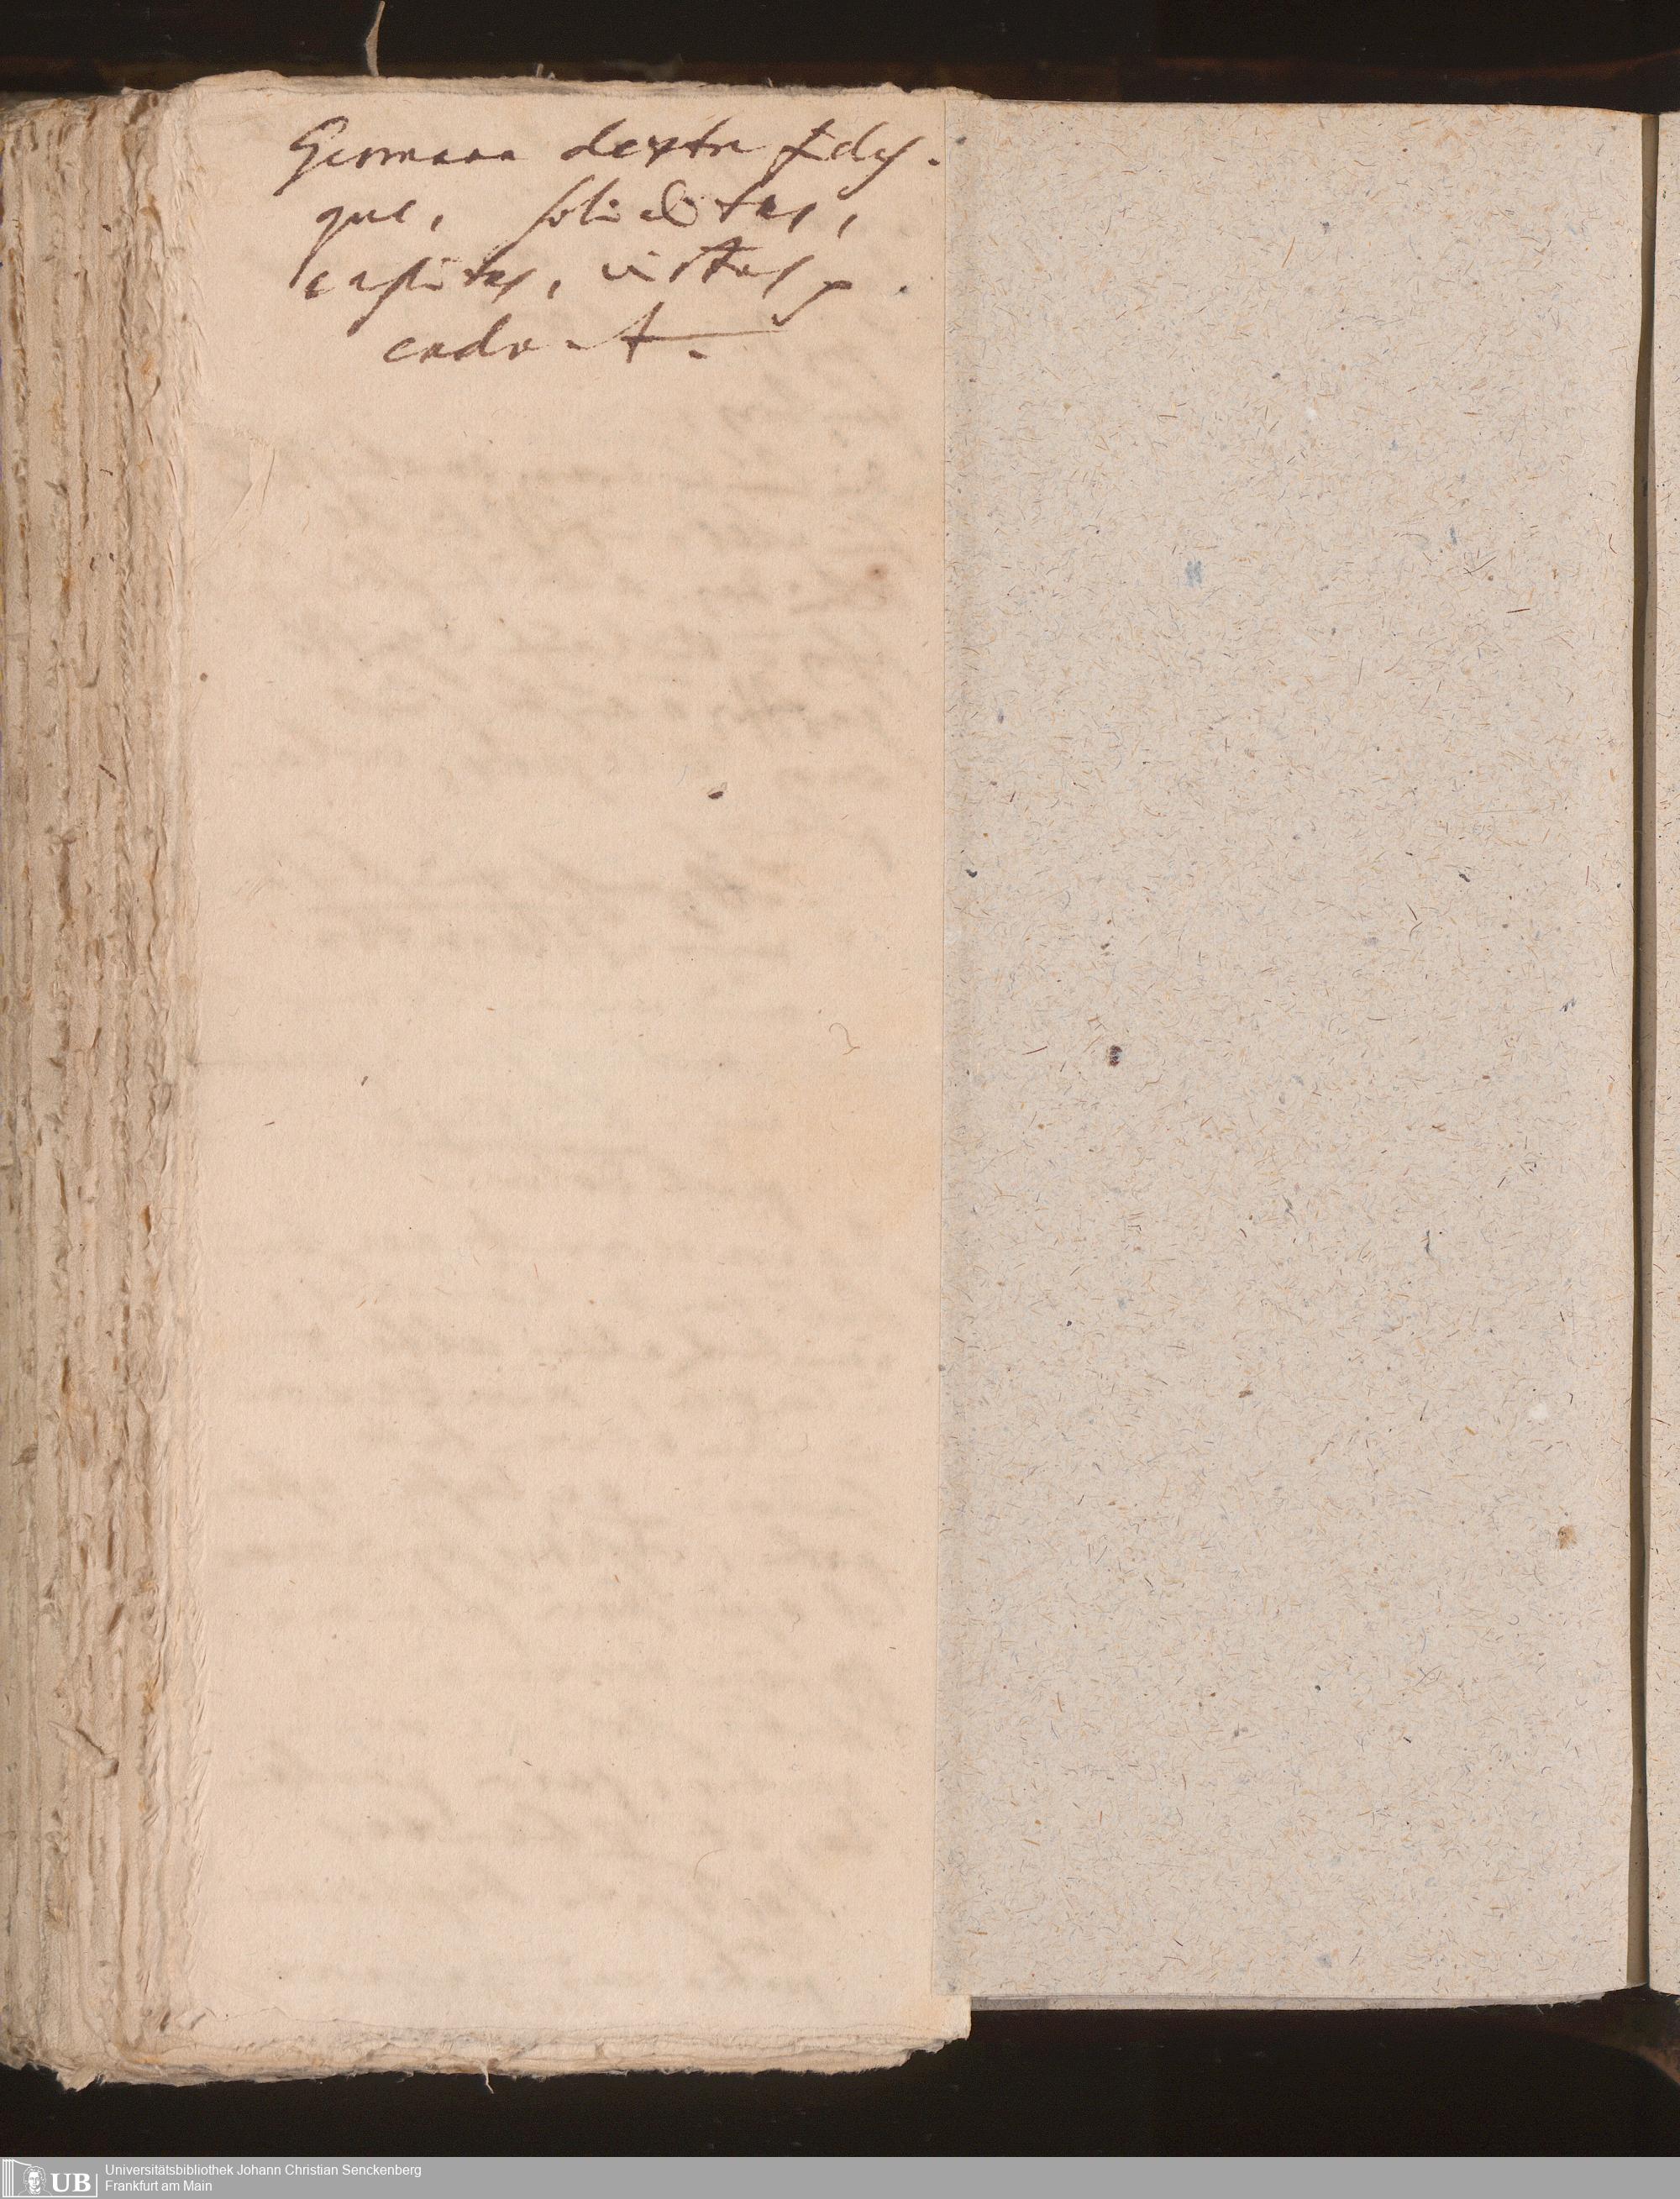 Germana dextra fides
que, soliditas,
castitas, virtus
cada. A.
Universitätsbibliothek Johann Christian Senckenberg
Frankfurt am Main
UB